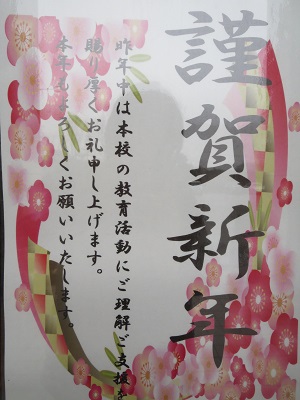 謹賀新年
昨年中は本校の教育活動にご理解ご支援を
賜り厚くお礼申し上げます。
本年もよろしくお願いいたします。